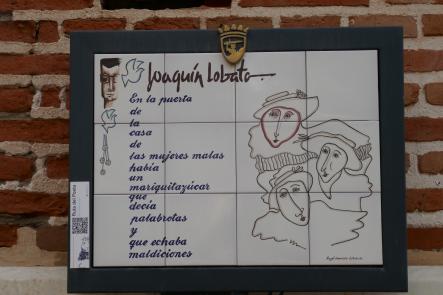 Joaquín Lobato
En la puerta
de
la
casa
de
las mujeres malas
había
un
mariquitazúcar
que
decía
palabrotas
y
que echaba
maldiciones
Ruta del Poeta